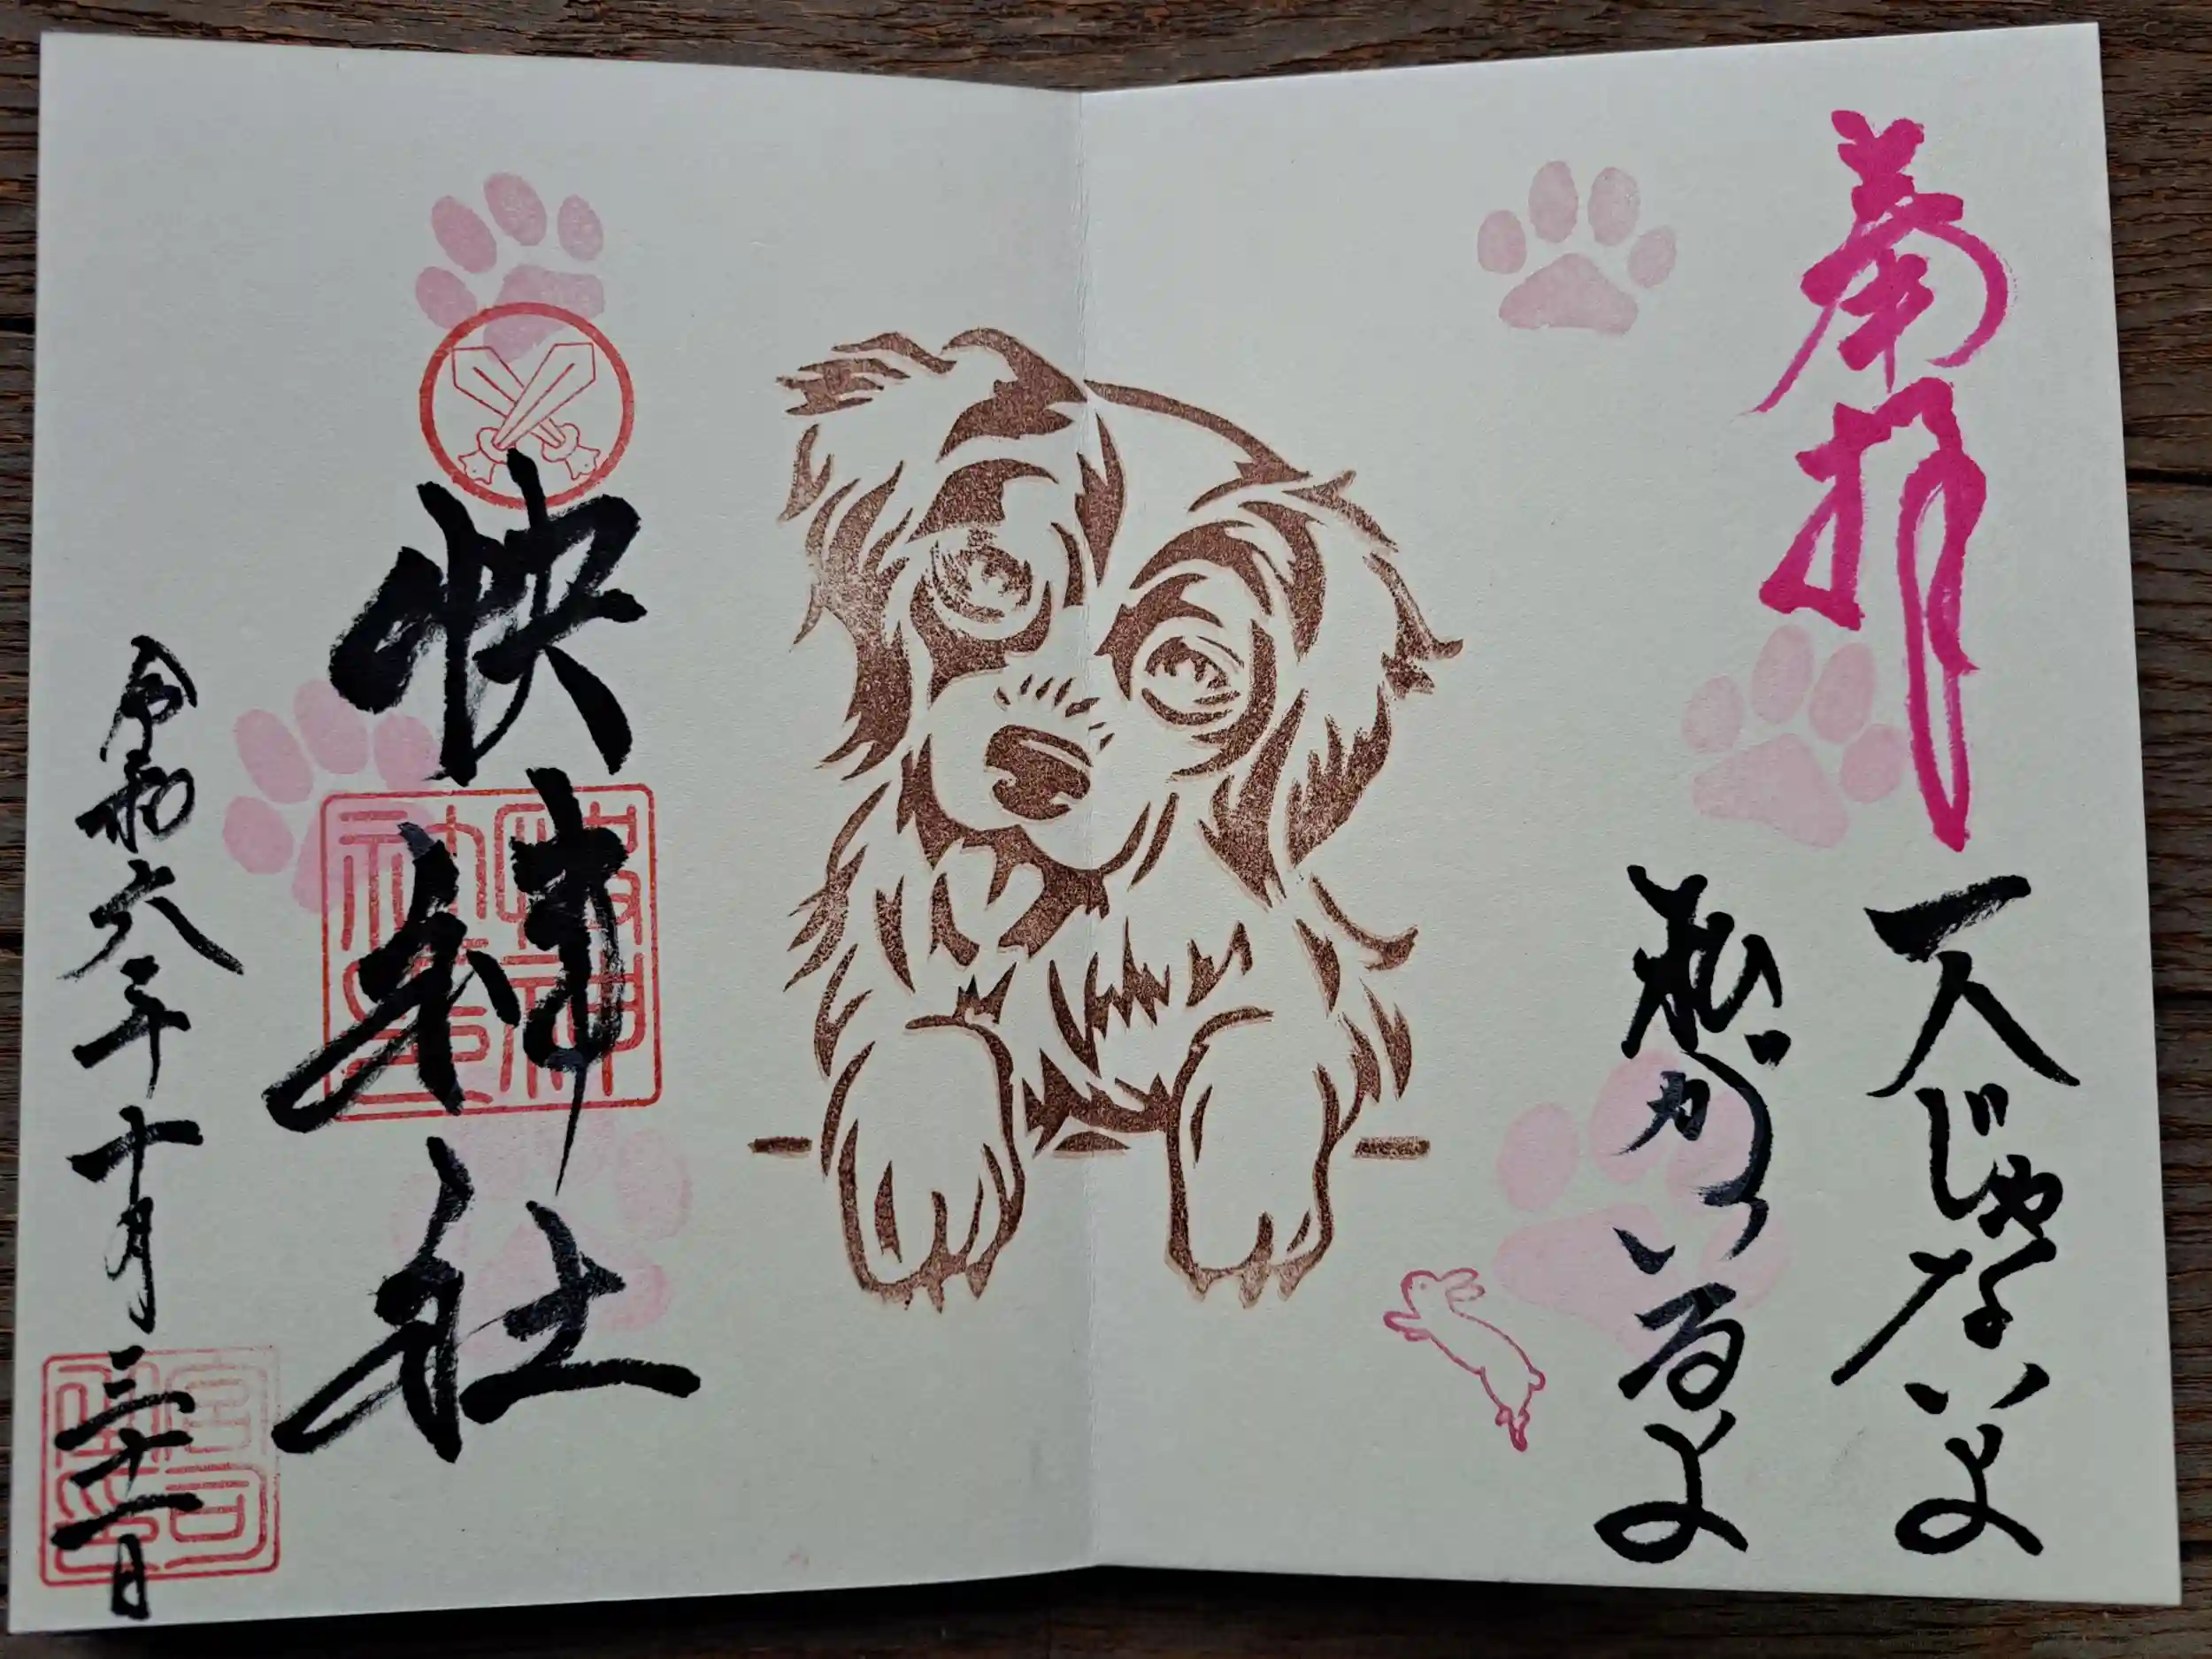 奉拝
一人じゃないよ
私がいるよ
快神社
令和六年十月三十一日